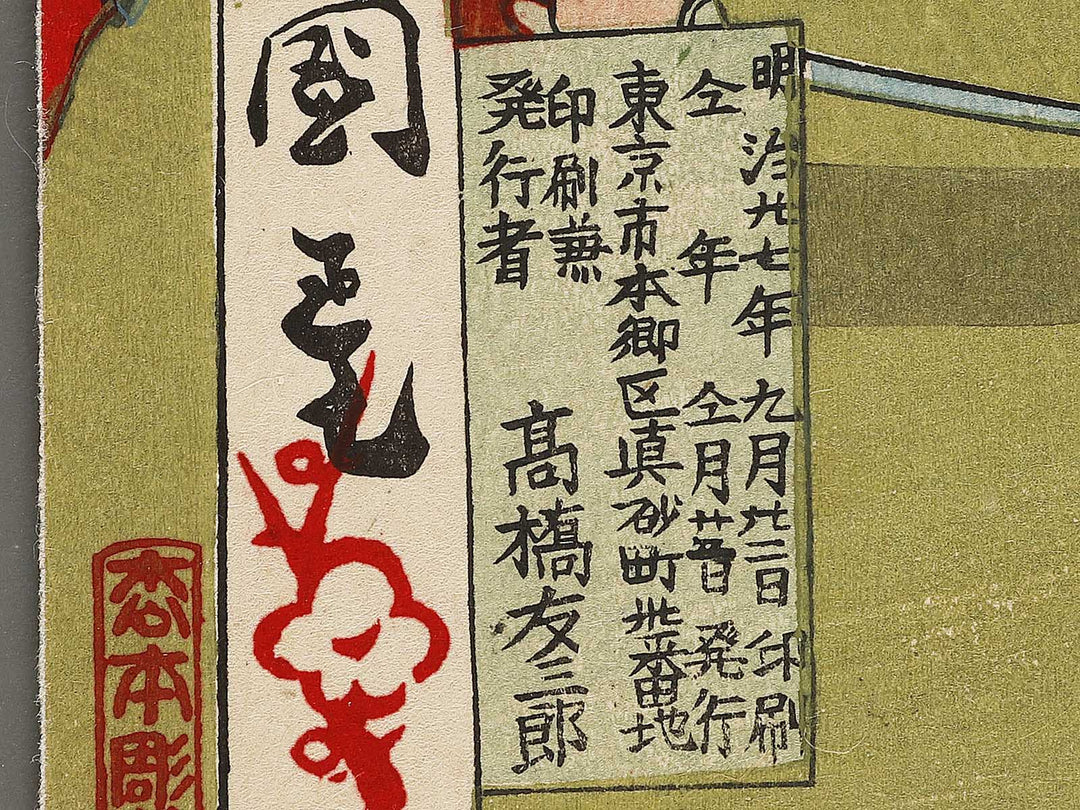 明治廿七年九月廿二日印刷
仝年仝月廿五日発行
東京市本郷区真砂町卅番地
印刷兼
発行者 髙橋友三郎
國
本彫